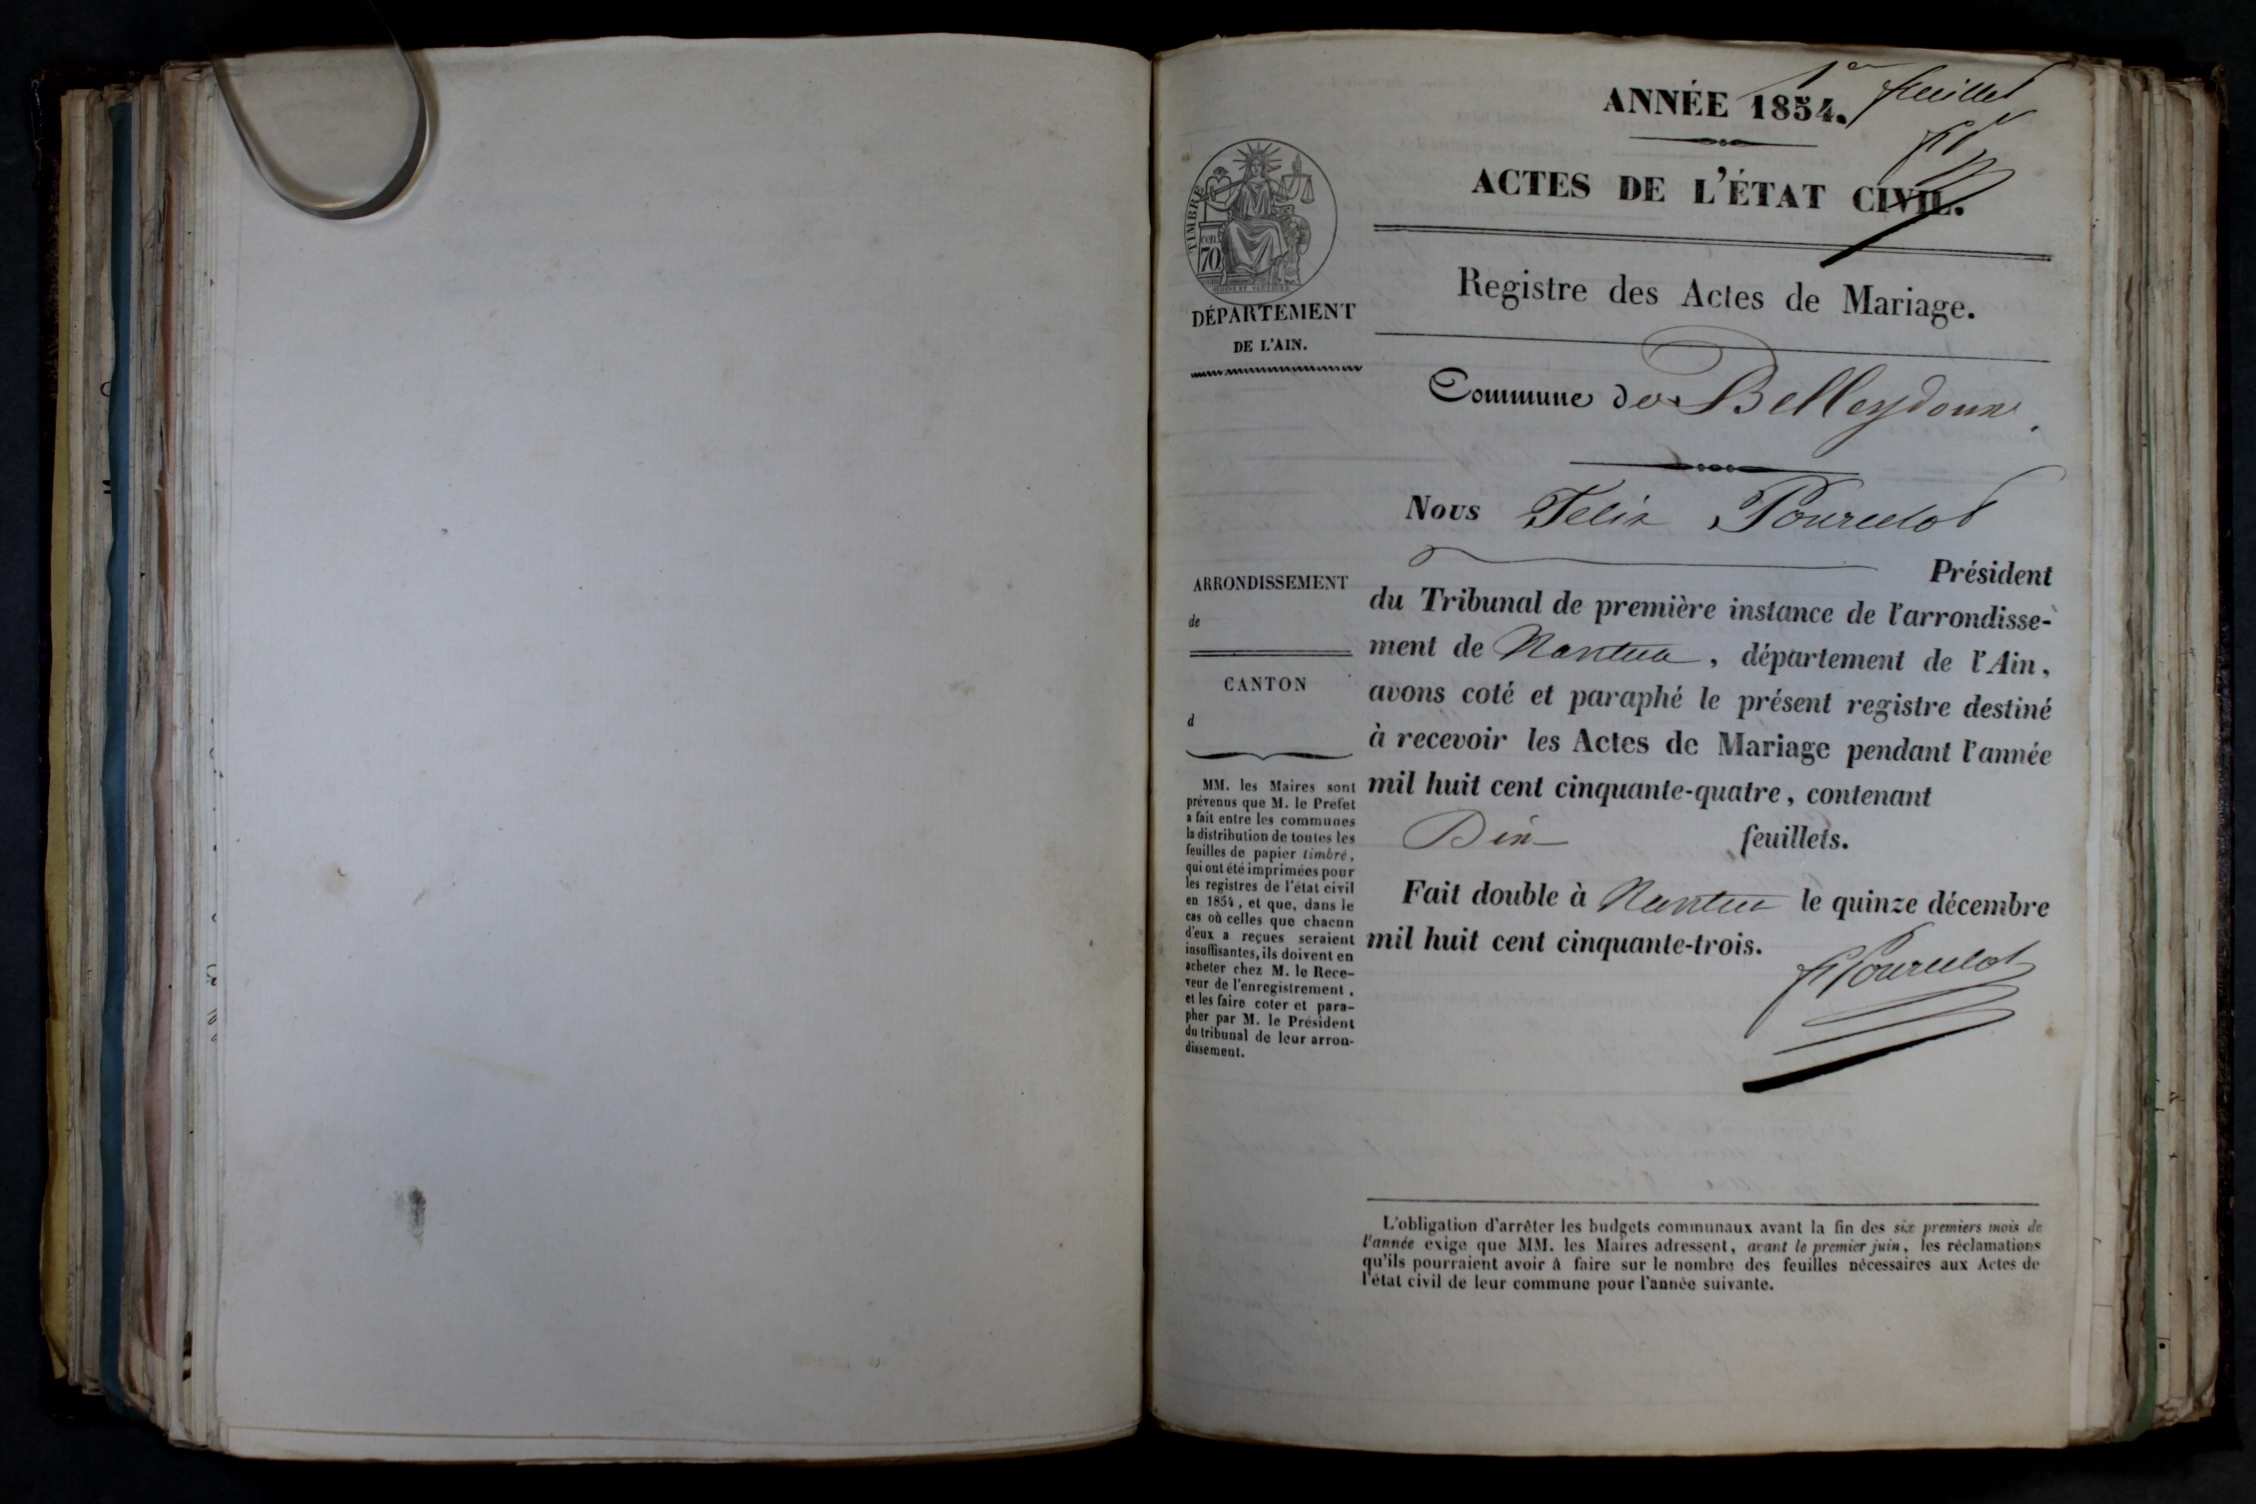 1er feuillet
ANNÉE 1854.
ACTES DE L'ÉTAT CIVIL.
TIMBRE
70
DÉPARTEMENT
DE L'AIN.
Registre des Actes de Mariage.
Commune de Belleydoux.
Nous Felix Pourcelot
Président
du Tribunal de première instance de l'arrondisse-
ment de Nantua, département de l'Ain,
avons coté et paraphé le présent registre destiné
à recevoir les Actes de Mariage pendant l'année
mil huit cent cinquante-quatre, contenant
Dix feuillets.
Fait double à Nantua le quinze décembre
mil huit cent cinquante-trois.
FPourcelot
ARRONDISSEMENT
de
CANTON
d
MM. les Maires sont
prévenus que M. le Préfet
a fait entre les communes
la distribution de toutes les
feuilles de papier timbré,
qui ont été imprimées pour
les registres de l'état civil
en 1854, et que, dans le
cas où celles que chacun
d'eux a reçues seraient
insuffisantes, ils doivent en
acheter chez M. le Rece-
veur de l'enregistrement,
et les faire coter et para-
pher par M. le Président
du tribunal de leur arron-
dissement.
L'obligation d'arrêter les budgets communaux avant la fin des six premiers mois de
l'année exige que MM. les Maires adressent, avant le premier juin, les réclamations
qu'ils pourraient avoir à faire sur le nombre des feuilles nécessaires aux Actes de
l'état civil de leur commune pour l'année suivante.